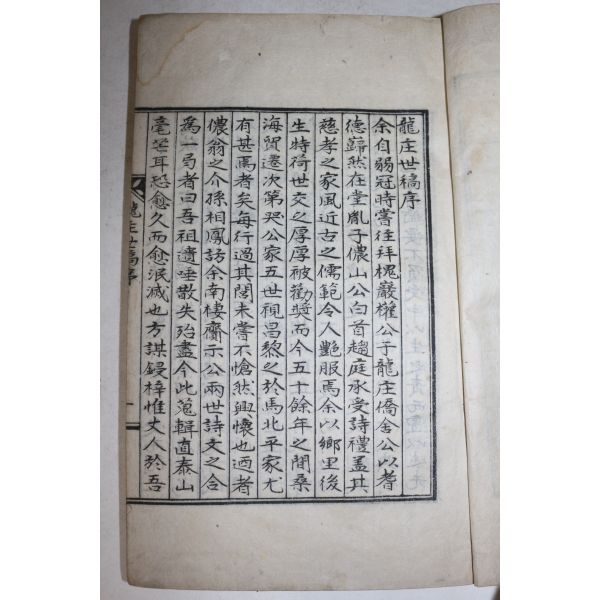 龍庄世稿序
余自弱冠時嘗往拜槐巖權公于龍庄僑舍公以耆
德巋然在堂胤子儂山公白首趨庭承受詩禮蓋其
慈孝之家風近古之儒範令人艶服焉余以鄉里後
生特荷世交之厚厚被勸奬而今五十餘年之間桑
海貿遷次第哭公家五世視昌黎之於馬北平家尤
有甚焉者矣每行過其閭未嘗不愴然興懷也廼者
儂翁之介孫相鳳訪余南棲齋示公兩世詩文之合
爲一弓者曰吾祖遺唾散失殆盡今此蒐輯直泰山
毫芒耳恐愈久而愈泯滅也方謀鋟梓惟丈人於吾
龍庄世稿序
一